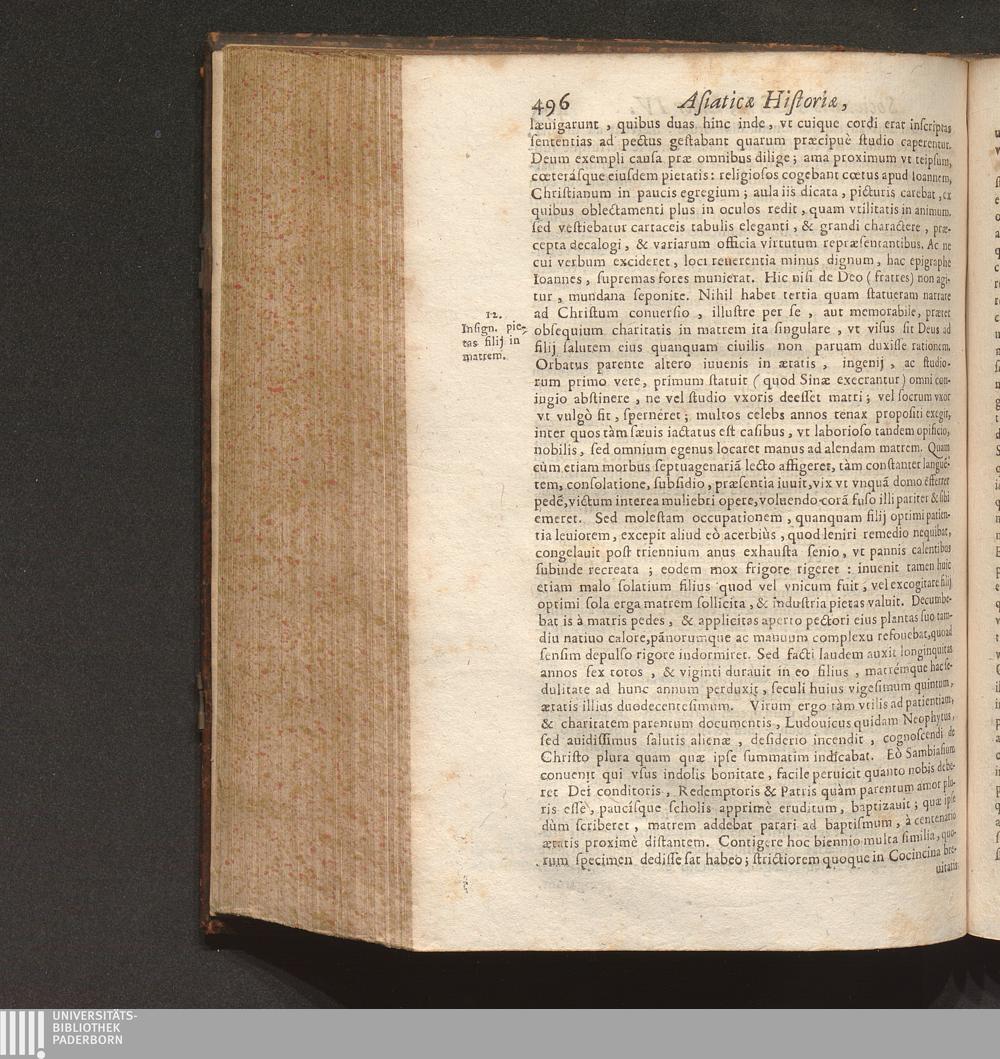 496 Asiaticæ Historiæ,
læuigarunt , quibus duas hinc inde, vt cuique cordi erat inscriptas
sententias ad pectus gestabant quarum præcipuè studio caperentur.
Deum exempli causa præ omnibus dilige; ama proximum vt teipsum,
cœterásque eiusdem pietatis: religiosos cogebant cœtus apud Ioannem,
Christianum in paucis egregium; aula iis dicata, picturis carebat, ex
quibus oblectamenti plus in oculos redit, quam vtilitatis in animum.
sed vestiebatur cartaceis tabulis eleganti, & grandi charactere , præ-
cepta decalogi, & variarum officia virtutum repræsentantibus. Ac ne
cui verbum excideret, loci reuerentia minus dignum, hac epigraphe
Ioannes, supremas fores munierat. Hic nisi de Deo (fratres) non agi-
tur, mundana seponite. Nihil habet tertia quam statueram narrare
ad Christum conuersio , illustre per se , aut memorabile, præter
obsequium charitatis in matrem ita singulare , vt visus sit Deus ad
filij salutem eius quanquam ciuilis non paruam duxisse rationem.
12.
Insign. pie-
tas filij in
matrem.
Orbatus parente altero iuuenis in ætatis , ingenij , ac studio-
rum primo vere, primum statuit (quod Sinæ execrantur) omni con-
iugio abstinere , ne vel studio vxoris deesset matri; vel socrum vxor
vt vulgò fit, sperneret; multos celebs annos tenax propositi exegit,
inter quos tàm sæuis iactatus est casibus, vt laborioso tandem opificio,
nobilis, sed omnium egenus locaret manus ad alendam matrem. Quam
cùm etiam morbus septuagenariã lecto affigeret, tàm constanter languẽ-
tem, consolatione, subsidio, præsentia iuuit, vix vt vnquã domo efferret
pedẽ, victum interea muliebri opere, voluendo corã fuso illi pariter & sibi
emeret. Sed molestam occupationem , quanquam filij optimi patien-
tia leuiorem, excepit aliud eò acerbiùs , quod leniri remedio nequibat,
congelauit post triennium anus exhausta senio, vt pannis calentibus
subinde recreata ; eodem mox frigore rigeret : inuenit tamen huic
etiam malo solatium filius quod vel vnicum fuit, vel excogitare filij
optimi sola erga matrem sollicita, & industria pietas valuit. Decumbe-
bat is à matris pedes, & applicitas aperto pectori eius plantas suo tam-
diu natiuo calore, pãnorumque ac manuum complexu refouebat, quoad
sensim depulso rigore indormiret. Sed facti laudem auxit longinquitas
annos sex totos , & viginti durauit in eo filius , matrémque hac se-
dulitate ad hunc annum perduxit, seculi huius vigesimum quintum,
ætatis illius duodecentesimum. Virum ergo tàm vtilis ad patientiam,
& charitatem parentum documentis , Ludouicus quidam Neophytus,
sed auidissimus salutis alienæ , desiderio incendit , cognoscendi de
Christo plura quam quæ ipse summatim indicabat. Eò Sambiasium
conuenit qui vsus indolis bonitate, facile peruicit quanto nobis debe-
ret Dei conditoris, Redemptoris & Patris quàm parentum amor plu-
ris esse, paucisque scholis apprimè eruditum, baptizauit; quæ ipse
dùm scriberet, matrem addebat parari ad baptismum, à centenario
ætatis proximè distantem. Contigere hoc biennio multa similia, quo-
rum specimen dedisse sat habeo; strictiorem quoque in Cocincina bre-
uitatis
UNIVERSITÄTS-
BIBLIOTHEK
PADERBORN